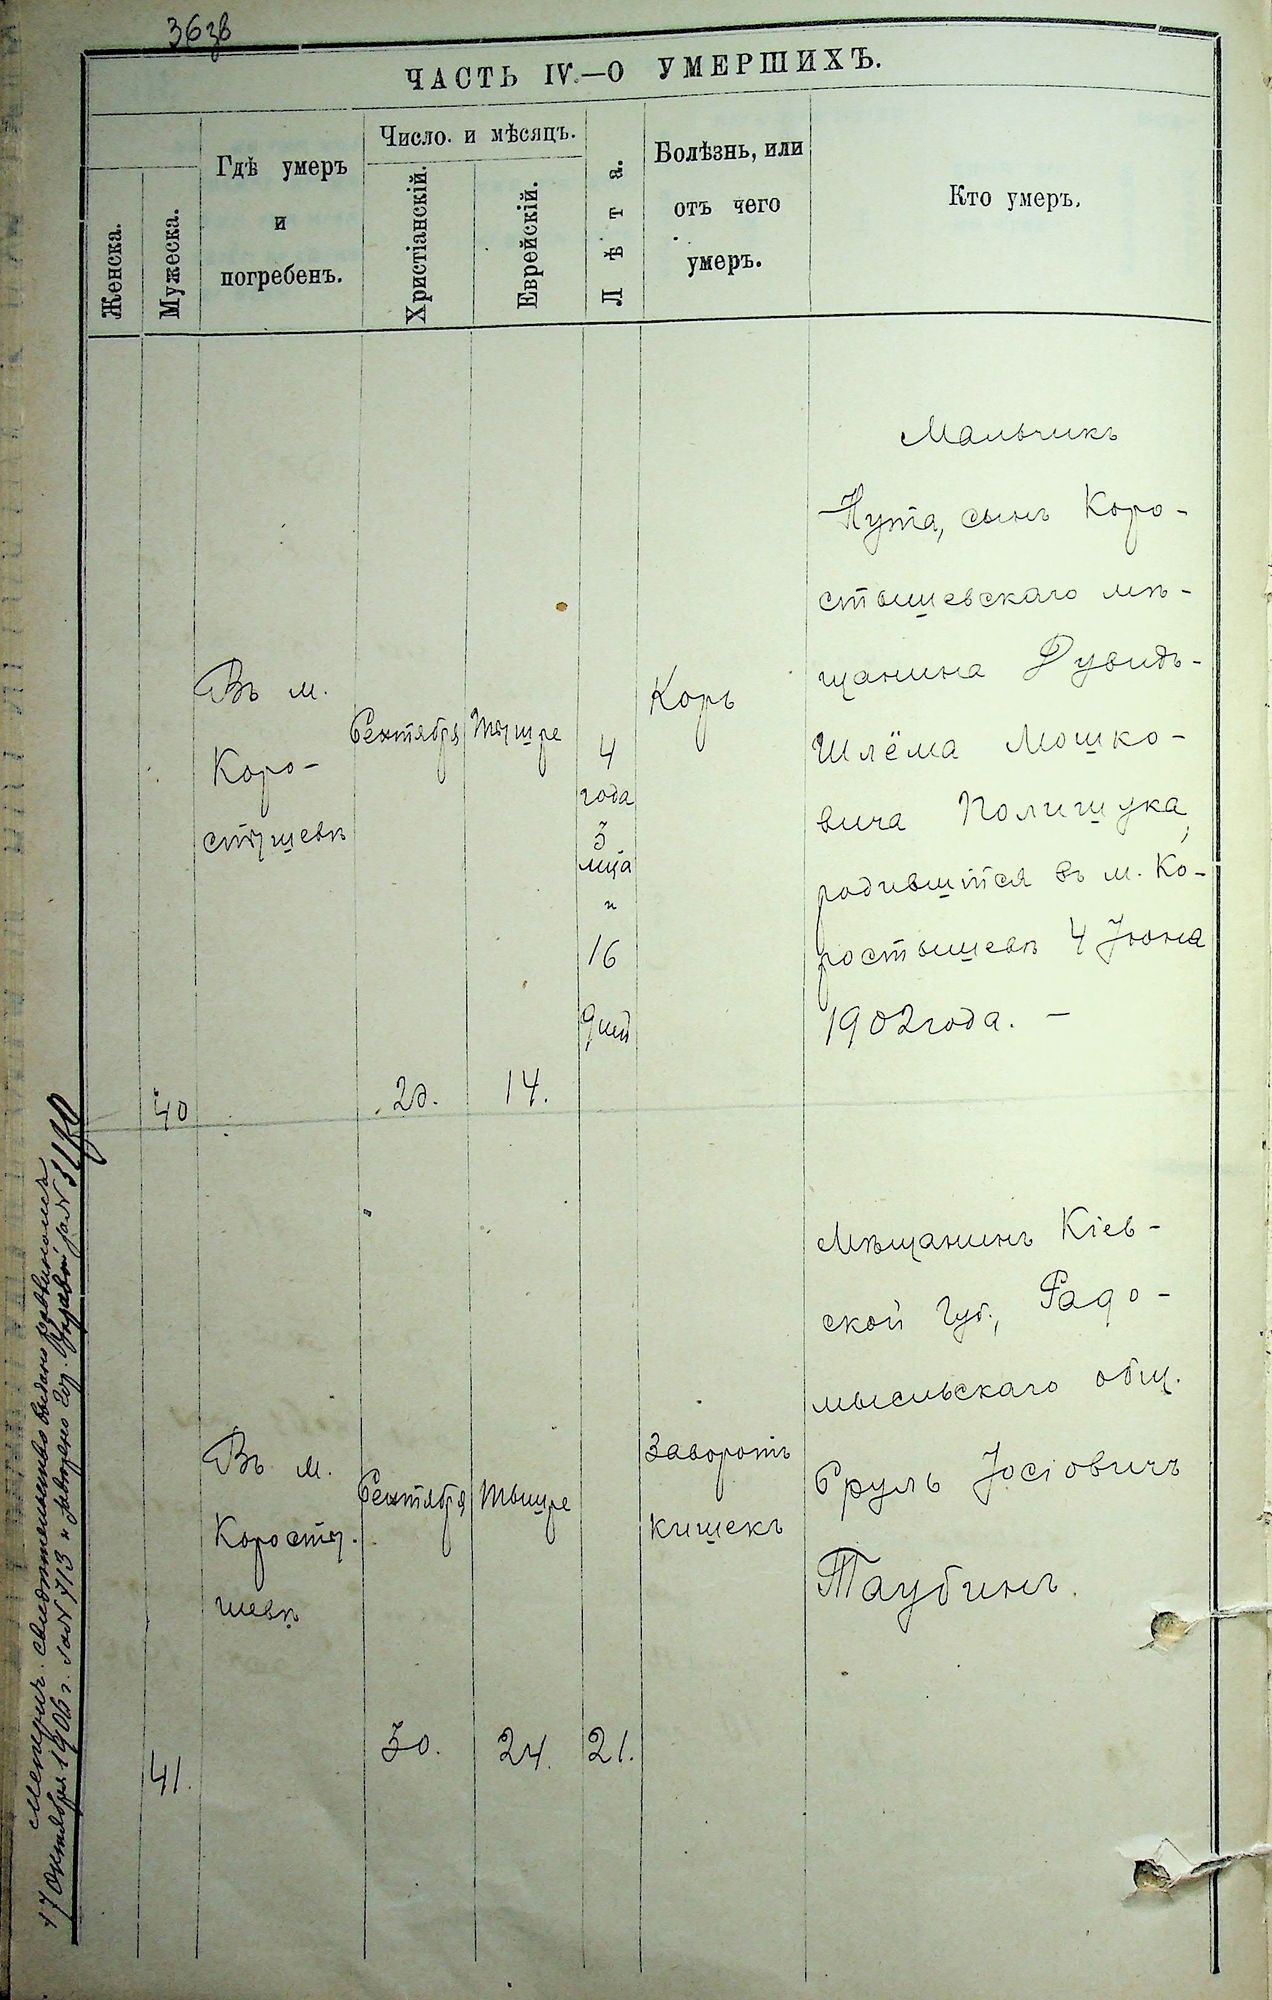 36зв
ЧАСТЬ IV.—О УМЕРШИХЪ.
Женска.
Мужеска.
Гдѣ умеръ
и
погребенъ.
Число. и мѣсяцъ.
Христіанскій.
Еврейскій.
Лѣта.
Болѣзнь, или
отъ чего
умеръ.
Кто умеръ.
40
Въ м.
Коро-
стышевѣ
Сентября
20.
Тышре
14.
4
года
3
мца
и
16
дней
Корь
Мальчикъ
Нута, сынъ Коро-
стышевскаго мѣ-
щанина Дувидъ-
Шлёма Мошко-
вича Полищука,
родившійся въ м. Ко-
ростышевѣ 4 Іюна
1902 года. —
41.
Въ м.
Коросты-
шевѣ
Сентября
30.
Тышре
24.
21.
Заворотъ
кишекъ
Мѣщанинъ Кіев-
ской Губ., Радо-
мысльскаго общ.
Сруль Іосіовичъ
Таубинъ.
Метрич. свидѣтельство выдано раввиномъ
17 Октября 1906 г. за № 713 и заверено Гор. Управой за №